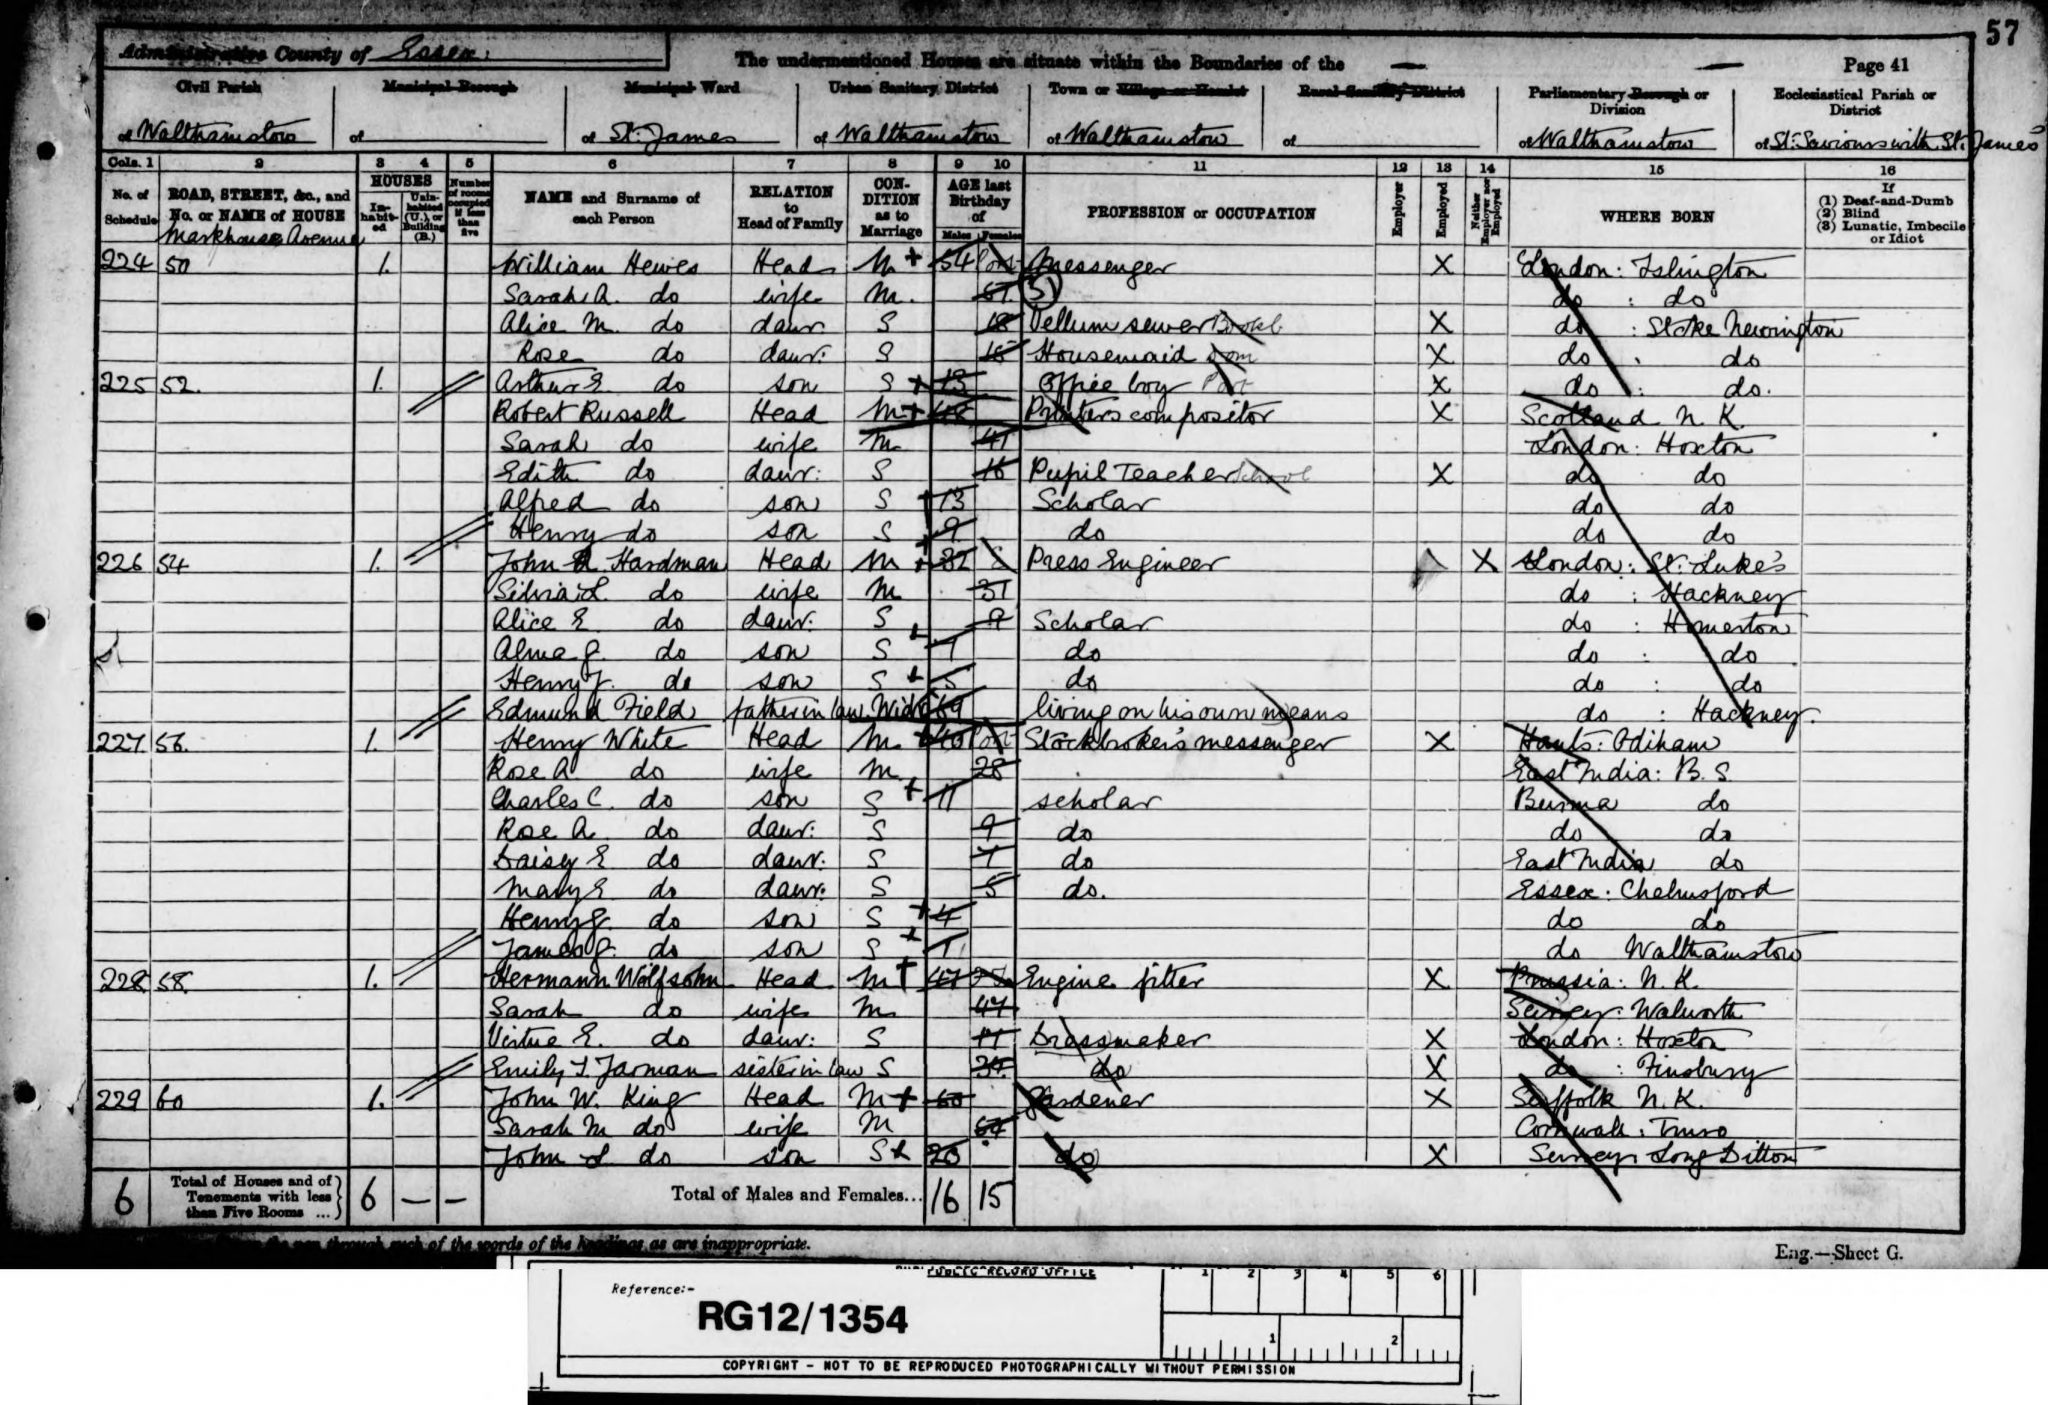 57
Administrative County of Essex.
The undermentioned Houses are situate within the Boundaries of the
Page 41
Civil Parish
Municipal Borough
Municipal Ward
Urban Sanitary District
Town or Village or Hamlet
Rural Sanitary District
Parliamentary Borough or Division
Ecclesiastical Parish or District
of Walthamstow
of
of St. James
of Walthamstow
of Walthamstow
of
of Walthamstow
of St. Saviours with St. James
Cols. 1 2 3 4 5 6 7 8 9 10 11 12 13 14 15 16
No. of Schedule
ROAD, STREET, &c., and No. or NAME of HOUSE
HOUSES
Inhabited
Uninhabited (U.), or Building (B.)
Number of rooms occupied if less than five
NAME and Surname of each Person
RELATION to Head of Family
CONDITION as to Marriage
AGE last Birthday of
Males Females
PROFESSION or OCCUPATION
Employer
Employed
Neither Employer nor Employed
WHERE BORN
If
(1) Deaf-and-Dumb
(2) Blind
(3) Lunatic, Imbecile or Idiot
Markhouse Avenue
224 50 1. William Hewes Head M 54 Messenger X London: Islington
Sarah A. do wife M. do : do
Alice M. do daur S 18 Vellum sewer X do : Stoke Newington
Rose do daur: S Housemaid Dom X do : do
225 52. 1. Arthur E. do son S 13 Office boy X do : do.
Robert Russell Head M Printers compositor X Scotland N. K.
Sarah do wife M 41 London: Hoxton
Edith do daur: S 16 Pupil Teacher School X do do
Alfred do son S 13 Scholar do do
Henry do son S 9 do do do
226 54 1. John Hardman Head M 32 Press Engineer X London: St. Luke's
Silvia L. do wife M 31 do : Hackney
Alice E. do daur: S 9 Scholar do : Homerton
Alma J. do son S 7 do do : do
Henry J. do son S 5 do do : do
Edmund Field father in law Widr 69 living on his own means do : Hackney.
227 56. 1. Henry White Head M 40 Stockbroker's messenger X Hants: Odiham
Rose A. do wife M 28 East India: B. S.
Charles C. do son S 11 scholar Burma do
Rose A. do daur: S 9 do do do
Daisy E do daur: S 7 do East India do
Mary E do daur: S 5 do. Essex: Chelmsford
Henry J. do son S 4 do do
James J. do son S 1 do Walthamstow
228 58. 1. Hermann Wolfsohn Head M 47 Engine fitter X Prussia: N. K.
Sarah do wife M 47 Surrey: Walworth
Virtue E. do daur: S Dressmaker X London: Hoxton
Emily J. Jarman sister in law S 34 do X do : Finsbury
229 60 1. John W. King Head M 60 Gardener X Suffolk N. K.
Sarah M do wife M 64 Cornwall: Truro
John S do son S 20 do X Surrey: Long Ditton
6 Total of Houses and of Tenements with less than Five Rooms ... 6 — — Total of Males and Females... 16 15
of the words of the headings as are inappropriate.
Eng.—Sheet G.
PUBLIC RECORD OFFICE
1 2 3 4 5 6
Reference:-
RG12/1354
1 2
COPYRIGHT - NOT TO BE REPRODUCED PHOTOGRAPHICALLY WITHOUT PERMISSION